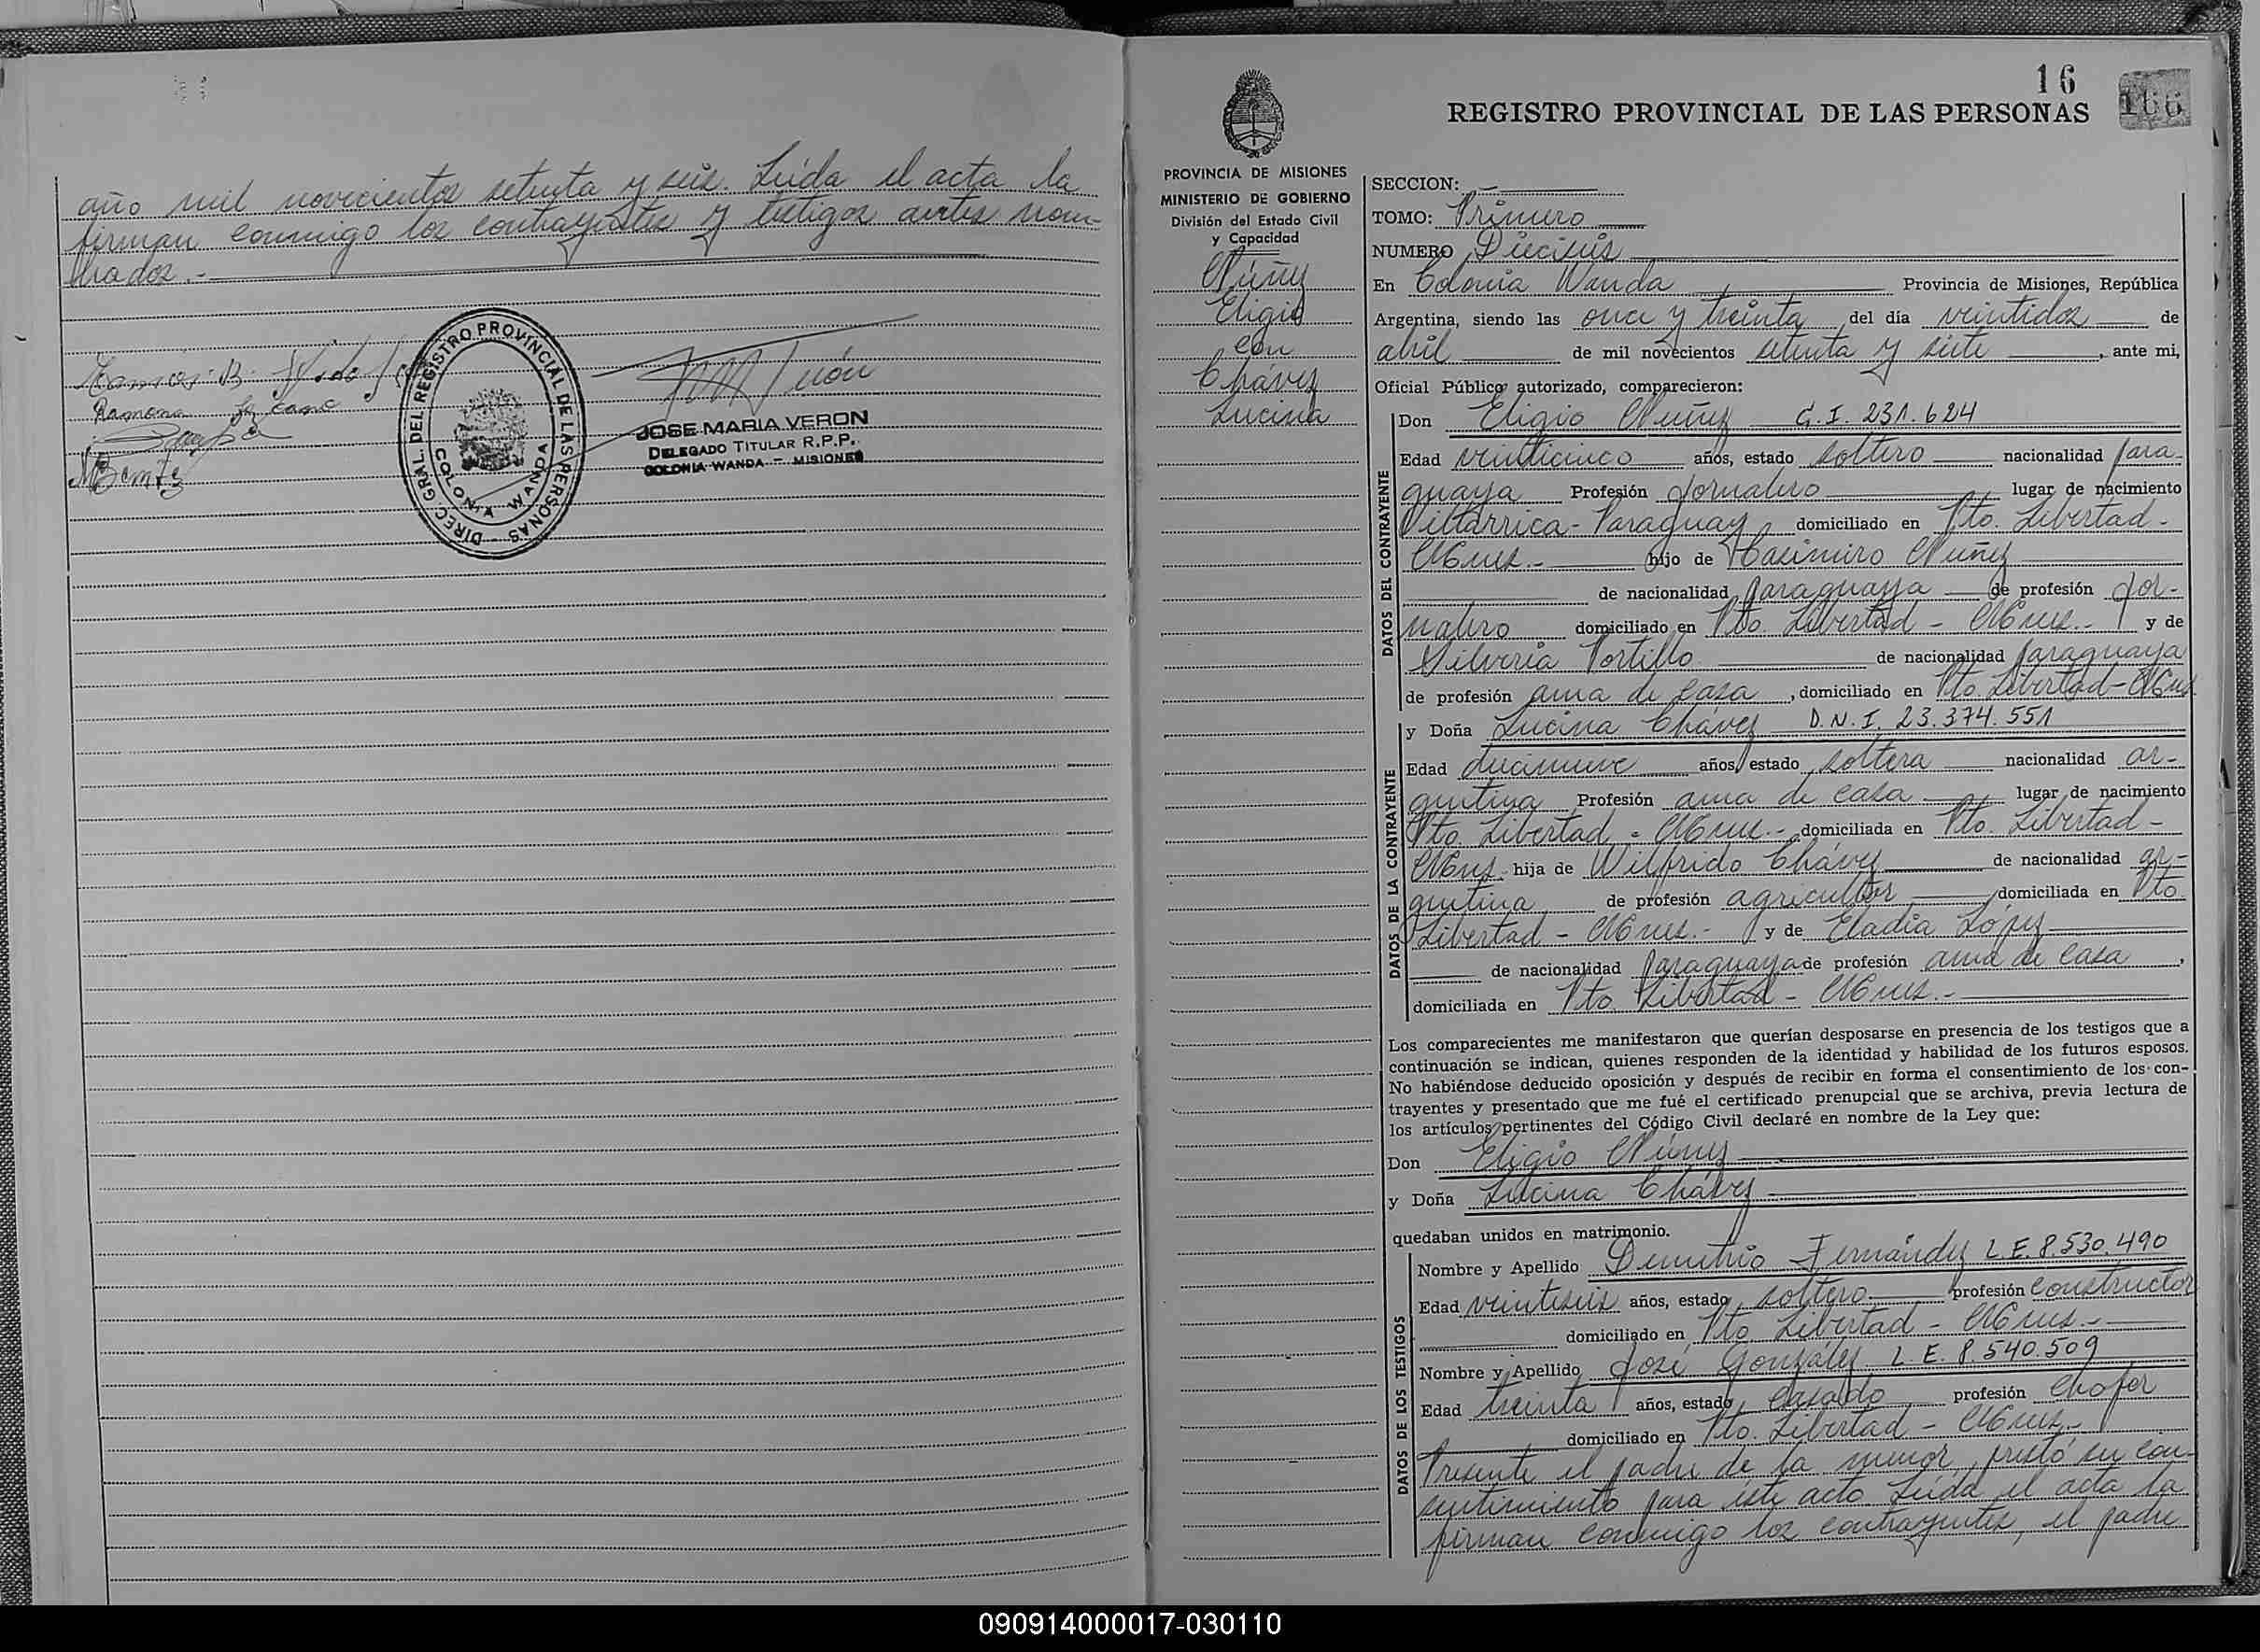 año mil novecientos setenta y seis. Leída el acta la
firman conmigo los contrayentes y testigos antes nom-
brados.-
Ramona Lezcano
DIREC. GRAL. DEL REGISTRO PROVINCIAL DE LAS PERSONAS
COLONIA WANDA
JOSE MARIA VERON
DELEGADO TITULAR R.P.P.
COLONIA WANDA - MISIONES
16
166
REGISTRO PROVINCIAL DE LAS PERSONAS
PROVINCIA DE MISIONES
MINISTERIO DE GOBIERNO
División del Estado Civil
y Capacidad
Núñez
Eligio
con
Chávez
Lucina
SECCION: -
TOMO: Primero
NUMERO Dieciséis
En Colonia Wanda Provincia de Misiones, República
Argentina, siendo las once y treinta del día veintidos de
abril de mil novecientos setenta y siete, ante mi,
Oficial Público autorizado, comparecieron:
DATOS DEL CONTRAYENTE
Don Eligio Núñez C.I. 231.624
Edad veinticinco años, estado soltero nacionalidad para-
guaya Profesión Jornalero lugar de nacimiento
Villarrica - Paraguay domiciliado en Pto. Libertad -
Mnes.- hijo de Casimiro Núñez
de nacionalidad paraguaya de profesión Jor-
nalero domiciliado en Pto. Libertad - Mnes.- y de
Silveria Portillo de nacionalidad paraguaya
de profesión ama de casa, domiciliado en Pto. Libertad - Mnes
DATOS DE LA CONTRAYENTE
y Doña Lucina Chávez D.N.I. 23.374.551
Edad diecinueve años, estado soltera nacionalidad ar-
gentina Profesión ama de casa lugar de nacimiento
Pto. Libertad - Mnes.- domiciliada en Pto. Libertad -
Mnes.- hija de Wilfrido Chávez de nacionalidad ar-
gentina de profesión agricultor domiciliada en Pto.
Libertad - Mnes.- y de Eladia López
de nacionalidad paraguaya de profesión ama de casa,
domiciliada en Pto. Libertad - Mnes.-
Los comparecientes me manifestaron que querían desposarse en presencia de los testigos que a
continuación se indican, quienes responden de la identidad y habilidad de los futuros esposos.
No habiéndose deducido oposición y después de recibir en forma el consentimiento de los con-
trayentes y presentado que me fué el certificado prenupcial que se archiva, previa lectura de
los artículos pertinentes del Código Civil declaré en nombre de la Ley que:
Don Eligio Núñez
y Doña Lucina Chávez
quedaban unidos en matrimonio.
DATOS DE LOS TESTIGOS
Nombre y Apellido Demetrio Fernández L.E. 8.530.490
Edad veintiseis años, estado soltero profesión constructor
domiciliado en Pto. Libertad - Mnes.-
Nombre y Apellido José González L.E. 8.540.509
Edad treinta años, estado casado profesión chofer
domiciliado en Pto. Libertad - Mnes.-
Presente el padre de la menor, prestó su con-
sentimiento para este acto. Leída el acta la
firman conmigo los contrayentes, el padre
090914000017-030110